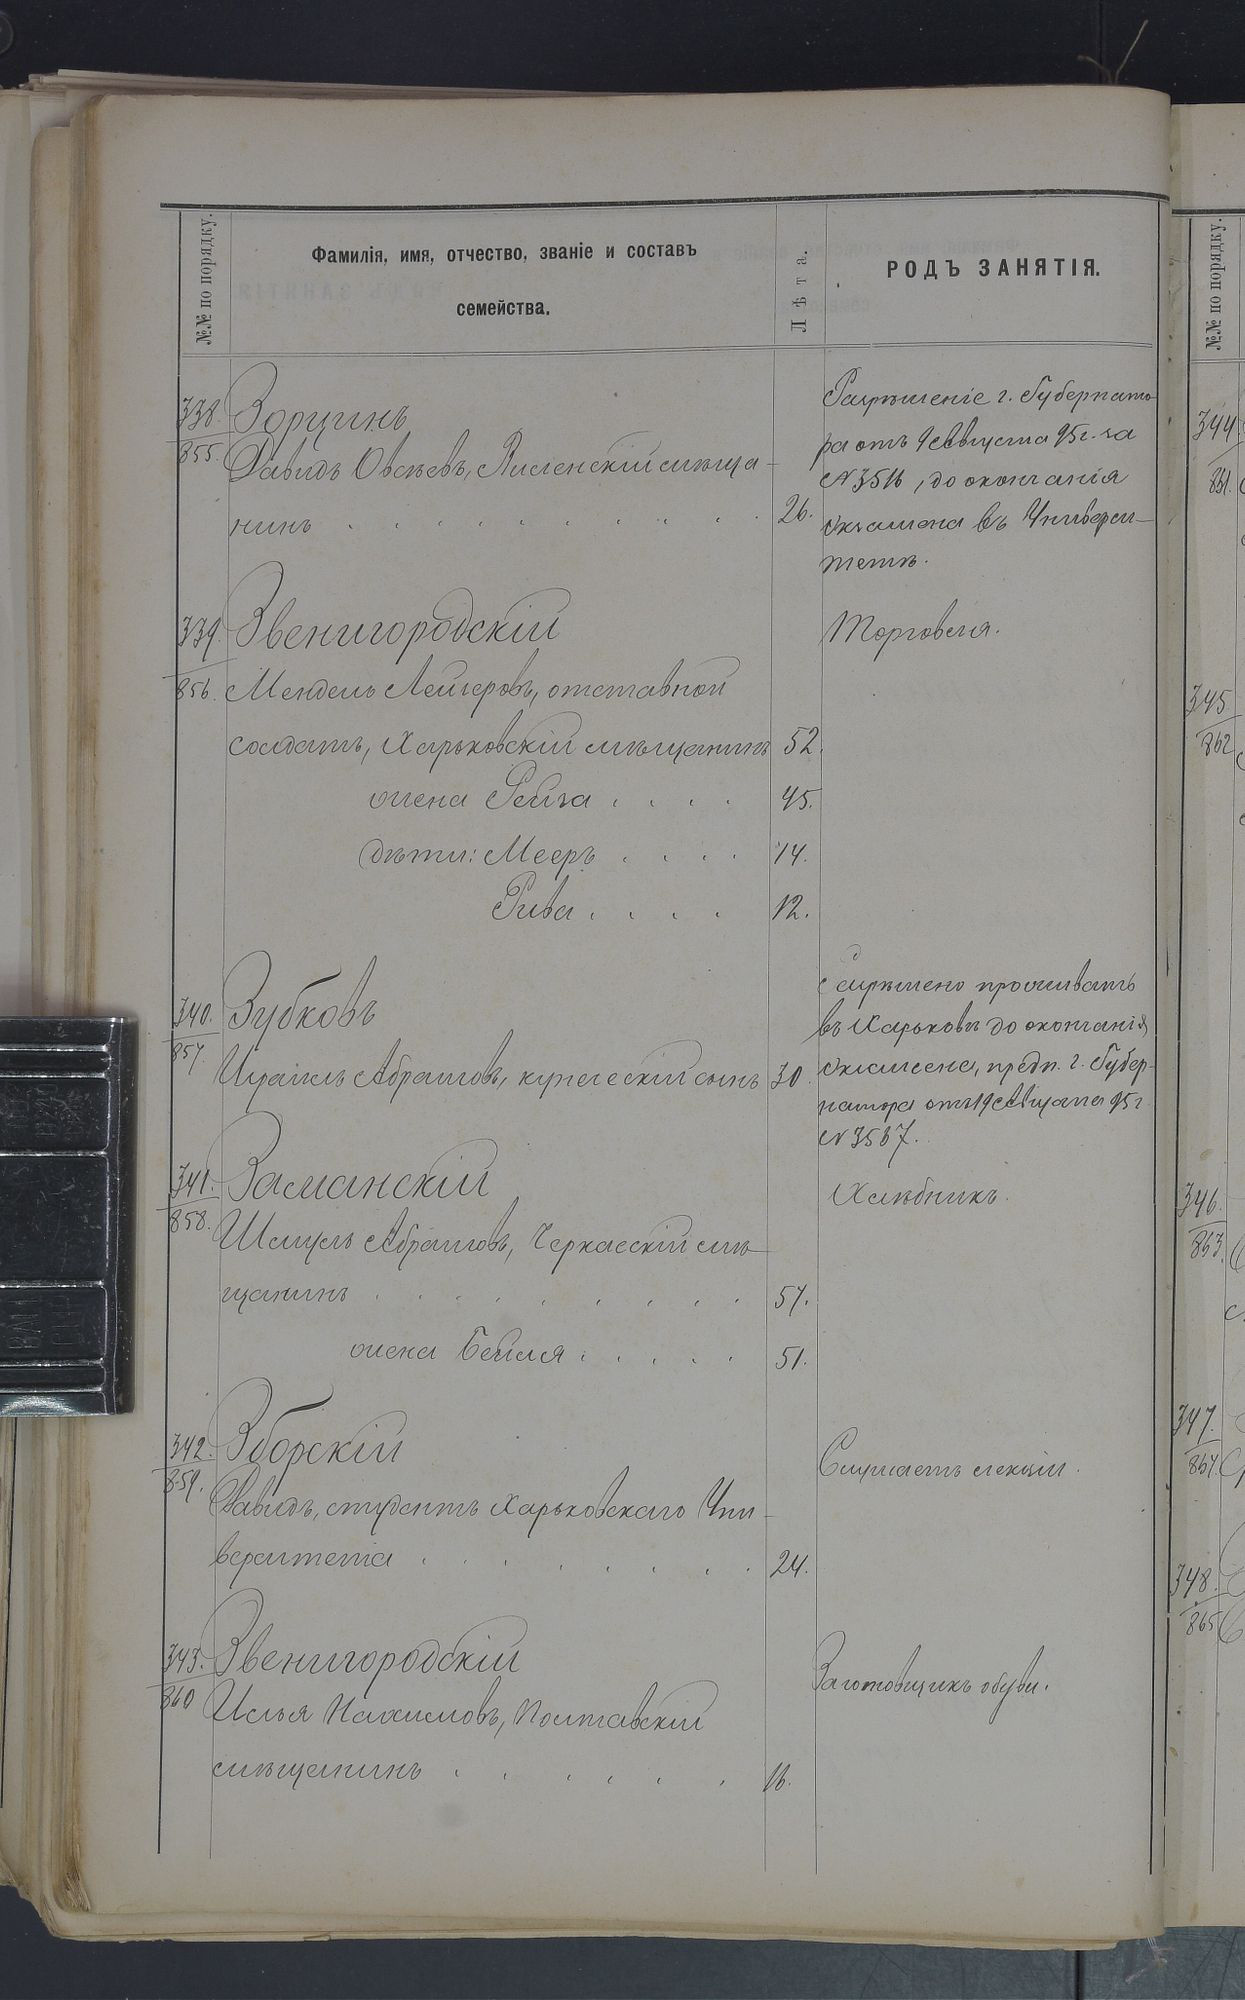 №№ по порядку.
Фамилія, имя, отчество, званіе и составъ
семейства.
Лѣта.
РОДЪ ЗАНЯТІЯ.
338.
855.
Зорцинъ
Давидъ Овсѣевъ, Виленскій мѣща-
нинъ . . . . . . . . . 26.
Разрѣшеніе г. Губернато-
ра отъ 9 Августа 95 г. за
№ 3516, до окончанія
экзамена въ Универси-
тетѣ.
339.
856.
Звенигородскій
Мендель Лейзеровъ, отставной
солдатъ, Харьковскій мѣщанинъ 52.
жена Рейза . . . . 45.
дѣти: Мееръ . . . . 14.
Рива . . . . 12.
Торговля.
340.
857.
Зубковъ
Израиль Абрамовъ, купеческій сынъ 30
Разрѣшено проживать
въ Харьковѣ до окончанія
экзамена, предп. г. Губер-
натора отъ 19 Августа 95 г.
№ 3567.
341.
858.
Заманскій
Шмуль Абрамовъ, Черкасскій мѣ-
щанинъ . . . . . . . . 57.
жена Бейля . . . . . 51.
Хлѣбникъ.
342.
859.
Зборскій
Давидъ, студентъ Харьковскаго Уни-
верситета . . . . . . . 24.
Слушаетъ лекціи.
343.
860
Звенигородскій
Илья Нахимовъ, Полтавскій
мѣщанинъ . . . . . . 16.
Заготовщикъ обуви.
№№ по порядку.
344
861.
345.
862
346.
863.
347.
864.
348.
865